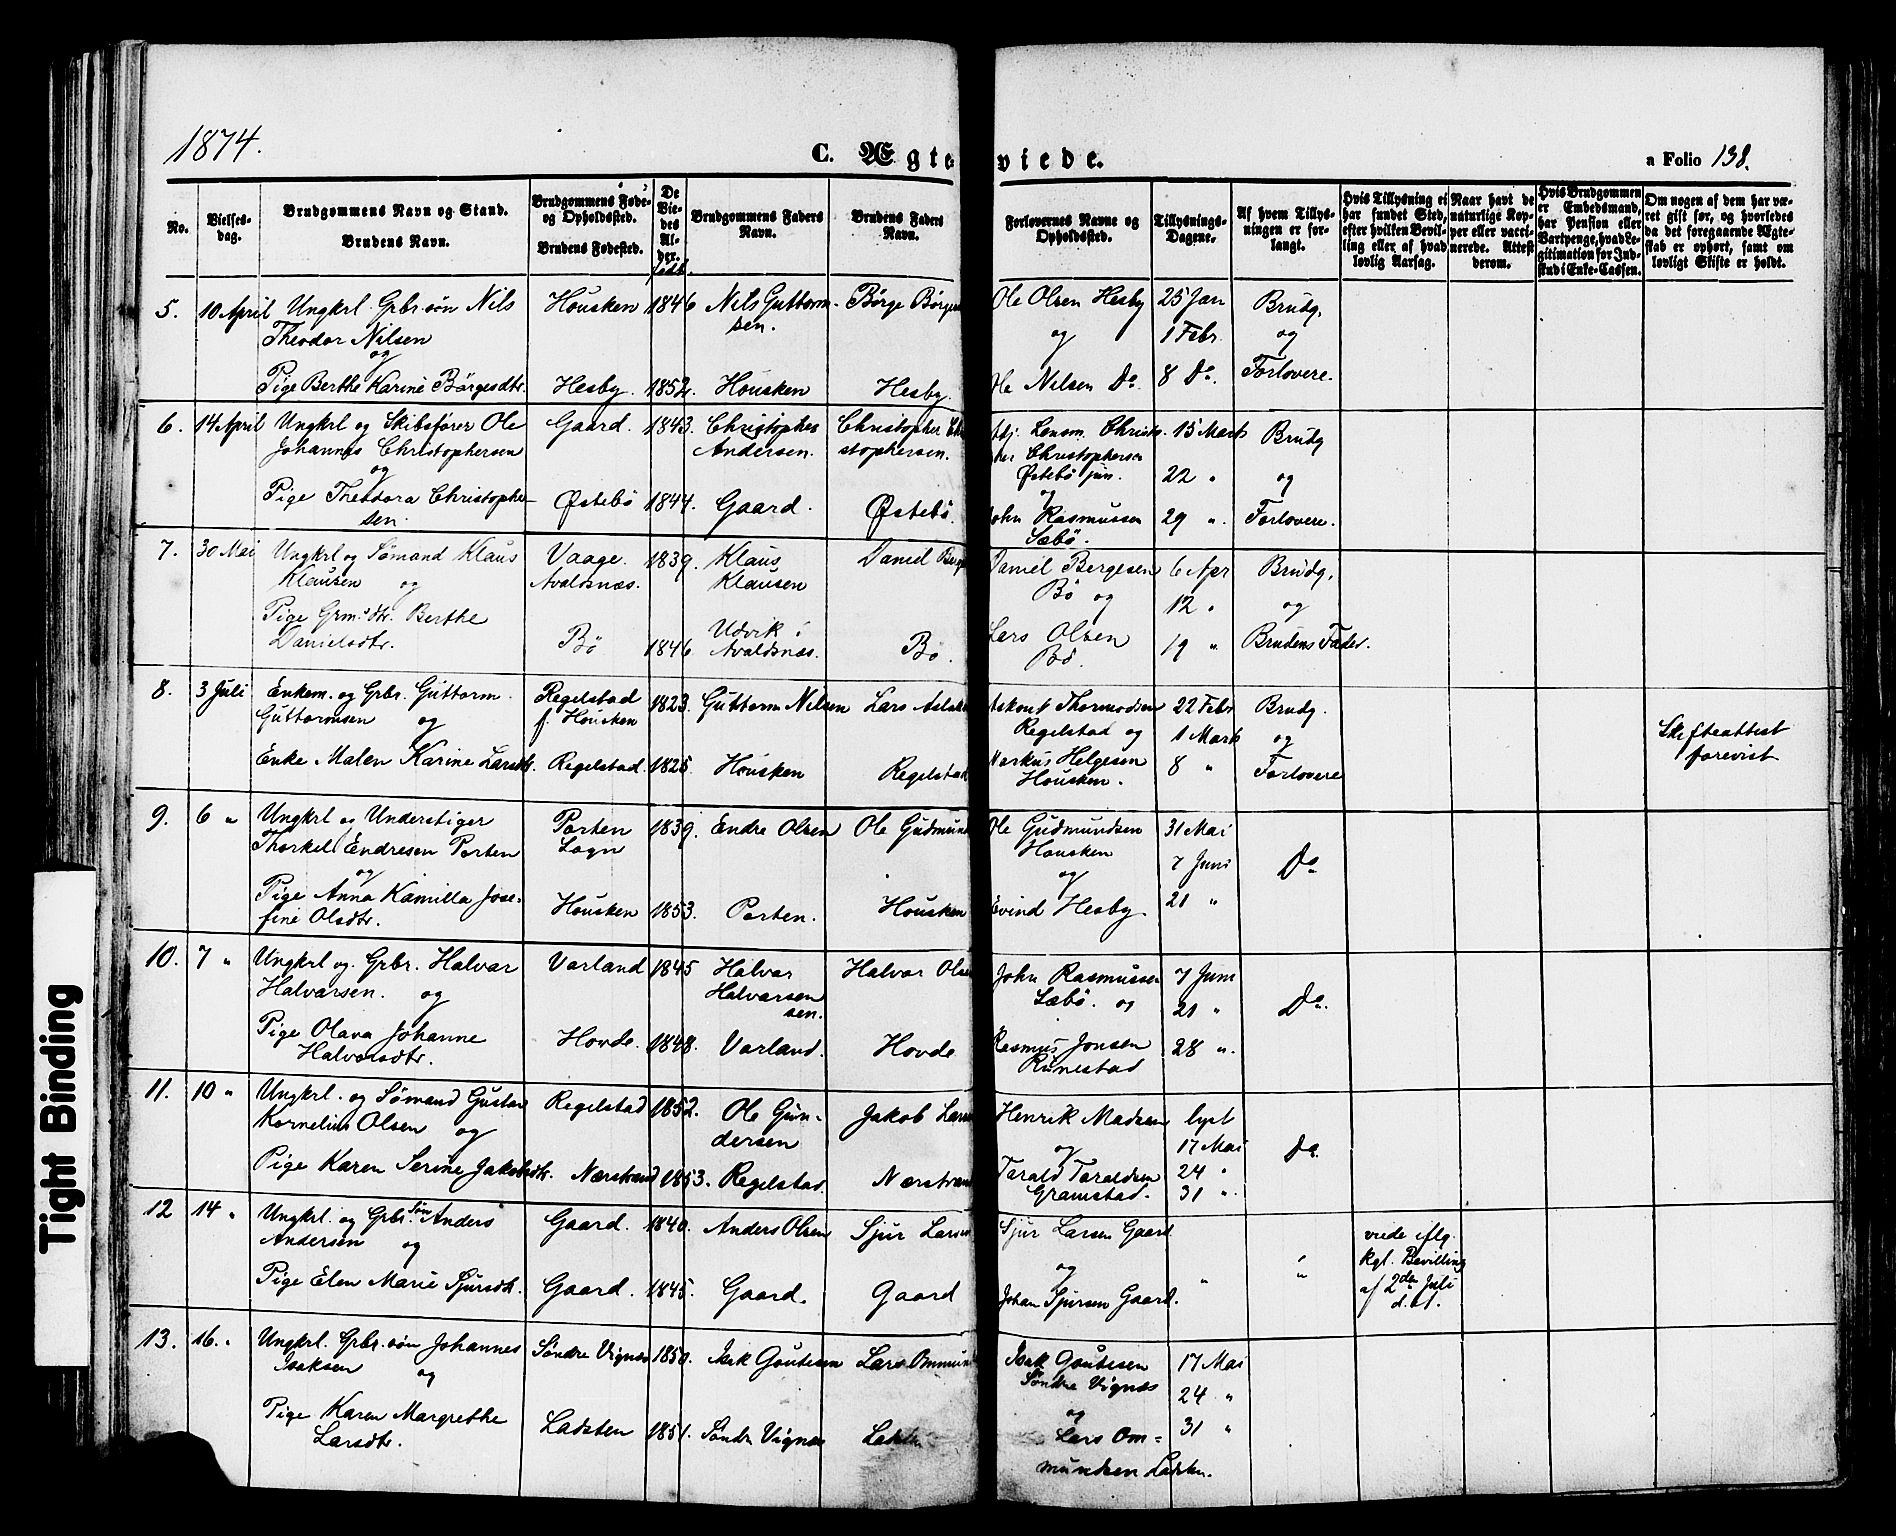 1874.
C. Ægte viede.
a Folio 138.
No.
Vielses-dag.
Brudgommens Navn og Stand.
Brudens Navn.
Brudgommens Føde- og Opholdssted.
Brudens Fødested.
De Viedes Alder.
født.
Brudgommens Faders Navn.
Brudens Faders Navn.
Forlovernes Navne og Opholdssted.
Tillysnings-Dagene.
Af hvem Tillysningen er forlangt.
Hvis Tillysning ei har fundet Sted, efter hvilken Bevilling eller af hvad lovlig Aarsag.
Naar havt de naturlige Kopper eller vaccinerede. Attest derom.
Hvis Brudgommen er Embedsmand, har Pension eller Vartpenge, hvad Legitimation for Indskud i Enke-Cassen.
Om nogen af dem har været gift før, og hvorledes da det foregaaende Ægteskab er ophørt, samt om lovligt Skifte er holdt.
5. 10 April Ungkrl. Grbr. søn Nils Housken 1846 Nils Guttorm- Børge Børge Ole Olsen Hesby 25 Jan Brudg.
Theodor Nilsen sen. og 1 Febr. og
og
Pige Berthe Karine Børgesdtr. Hesby. 1852. Housken Hesby. Ole Nilsen Do. 8 Do. Forlovere.
6. 14 April Ungkrl og Skibsfører Ole Gaard. 1843. Christopher Christopher Chri Adj. Lensm. Christo- 15 Marts Brudg
Johannes Christophersen Andersen. stophersen. pher Christophersen
og Østebø jun. 22 " og
Pige Theodora Christopher- Østebø 1844. Gaard. Østebø. og
sen. John Rasmussen 29 ". Forlovere.
Sæbø.
7. 30 Mai Ungkrl og Sømand Klaus Vaage. 1839. Klaus Daniel Berge Daniel Bergesen 6 Apr Brudg.
Klausen og Avaldsnæs. Klausen Bø og 12 " og
Pige Grmd. dtr. Berthe Udvik i
Danielsdtr. Bø 1846 Avaldsnæs. Bø. Lars Olsen 19 " Brudens Fader.
Bø.
8. 3 Juli Enkem. og Grbr. Guttorm Regelstad 1823. Guttorm Nilsen Lars Aslak Thormodsen 22 Febr Brudg.
Guttormsen og f. Housken Regelstad og 1 Marts og Skifteattest
Enke Malen Karine Larsdtr. Regelstad. 1825 Housken Regelstad Markus Helgesen 8 " Forlovere forevist
Housken.
9. 6 " Ungkrl og Understiger Porten 1839. Endre Olsen Ole Gudmund Ole Gudmundsen 31 Mai
Thorkel Endresen Porten Sogn Housken 7 Juni Do
og og
Pige Anna Kamilla Jose- Housken 1853. Porten. Housken Eivind Hesby. 21 "
fine Olsdtr.
10. 7 " Ungkrl og. Grbr. Halvar Varland 1845 Halvar Halvar Olsen John Rasmussen 7 Juni
Halvarsen. og Halvarsen Sæbø. og 21 " Do.
sen.
Pige Olava Johanne Hovde. 1848. Varland. Hovde Rasmus Jonsen 28 ".
Halvorsdtr. Runestad
11. 10 " Ungkrl. og Sømand Gustav Regelstad 1852. Ole Gun- Jakob Larsen Henrik Madsen lyst
Kornelius Olsen og dersen og 17 Mai Do.
Pige Karen Serine Jakobsdtr. Nærstrand 1853. Regelstad. Nærstrand Tarald Taraldsen 24 "
Gramstad. 31 ".
12 14 " Ungkrl. og Grbr. Søn Anders Gaard. 1840. Anders Olsen Sjur Larsen Sjur Larsen Gaard viede iflg.
Andersen og og " " kgl. Bevilling
Pige Elen Marie Sjursdtr. Gaard. 1845. Gaard. Gaard Johan Sjursen Gaard. af 2den Juli
d. A.
13. 16. " Ungkrl. Grbr. søn Johannes Søndre Vignes 1850. Isak Goutesen Lars Ommund Isak Goutesen 17 Mai
Isaksen og Søndre Vignes 24 "
og
Pige Karen Margrethe Ladsten 1851. Søndre Vignes Lars Om- 31 "
Larsdtr. mundsen Ladsten.
Tight Binding